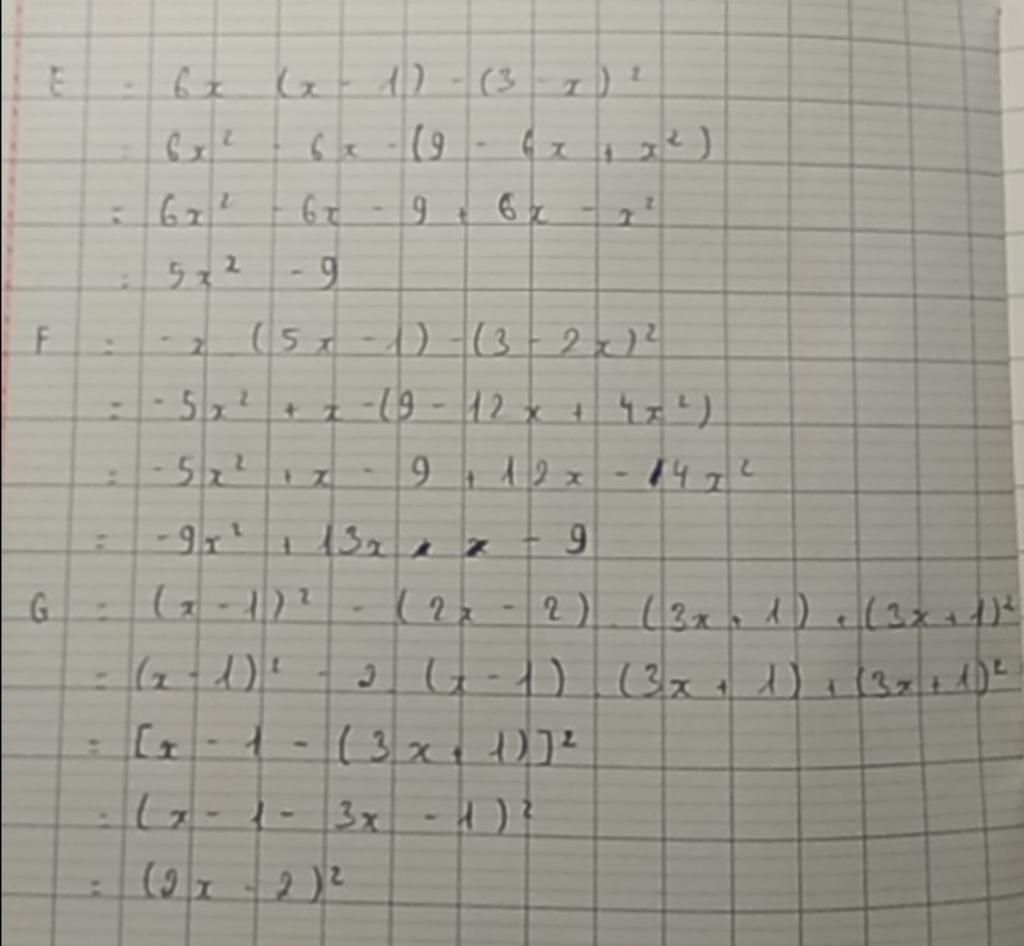 E = 6x (x - 1) - (3 - x)²
= 6x² - 6x - (9 - 6x + x²)
= 6x² - 6x - 9 + 6x - x²
= 5x² - 9
F = -x (5x - 1) - (3 - 2x)²
= -5x² + x - (9 - 12x + 4x²)
= -5x² + x - 9 + 12x - 4x²
= -9x² + 13x - 9
G = (x - 1)² - (2x - 2) (3x + 1) + (3x + 1)²
= (x - 1)² - 2 (x - 1) (3x + 1) + (3x + 1)²
= [x - 1 - (3x + 1)]²
= (x - 1 - 3x - 1)²
= (2x - 2)²